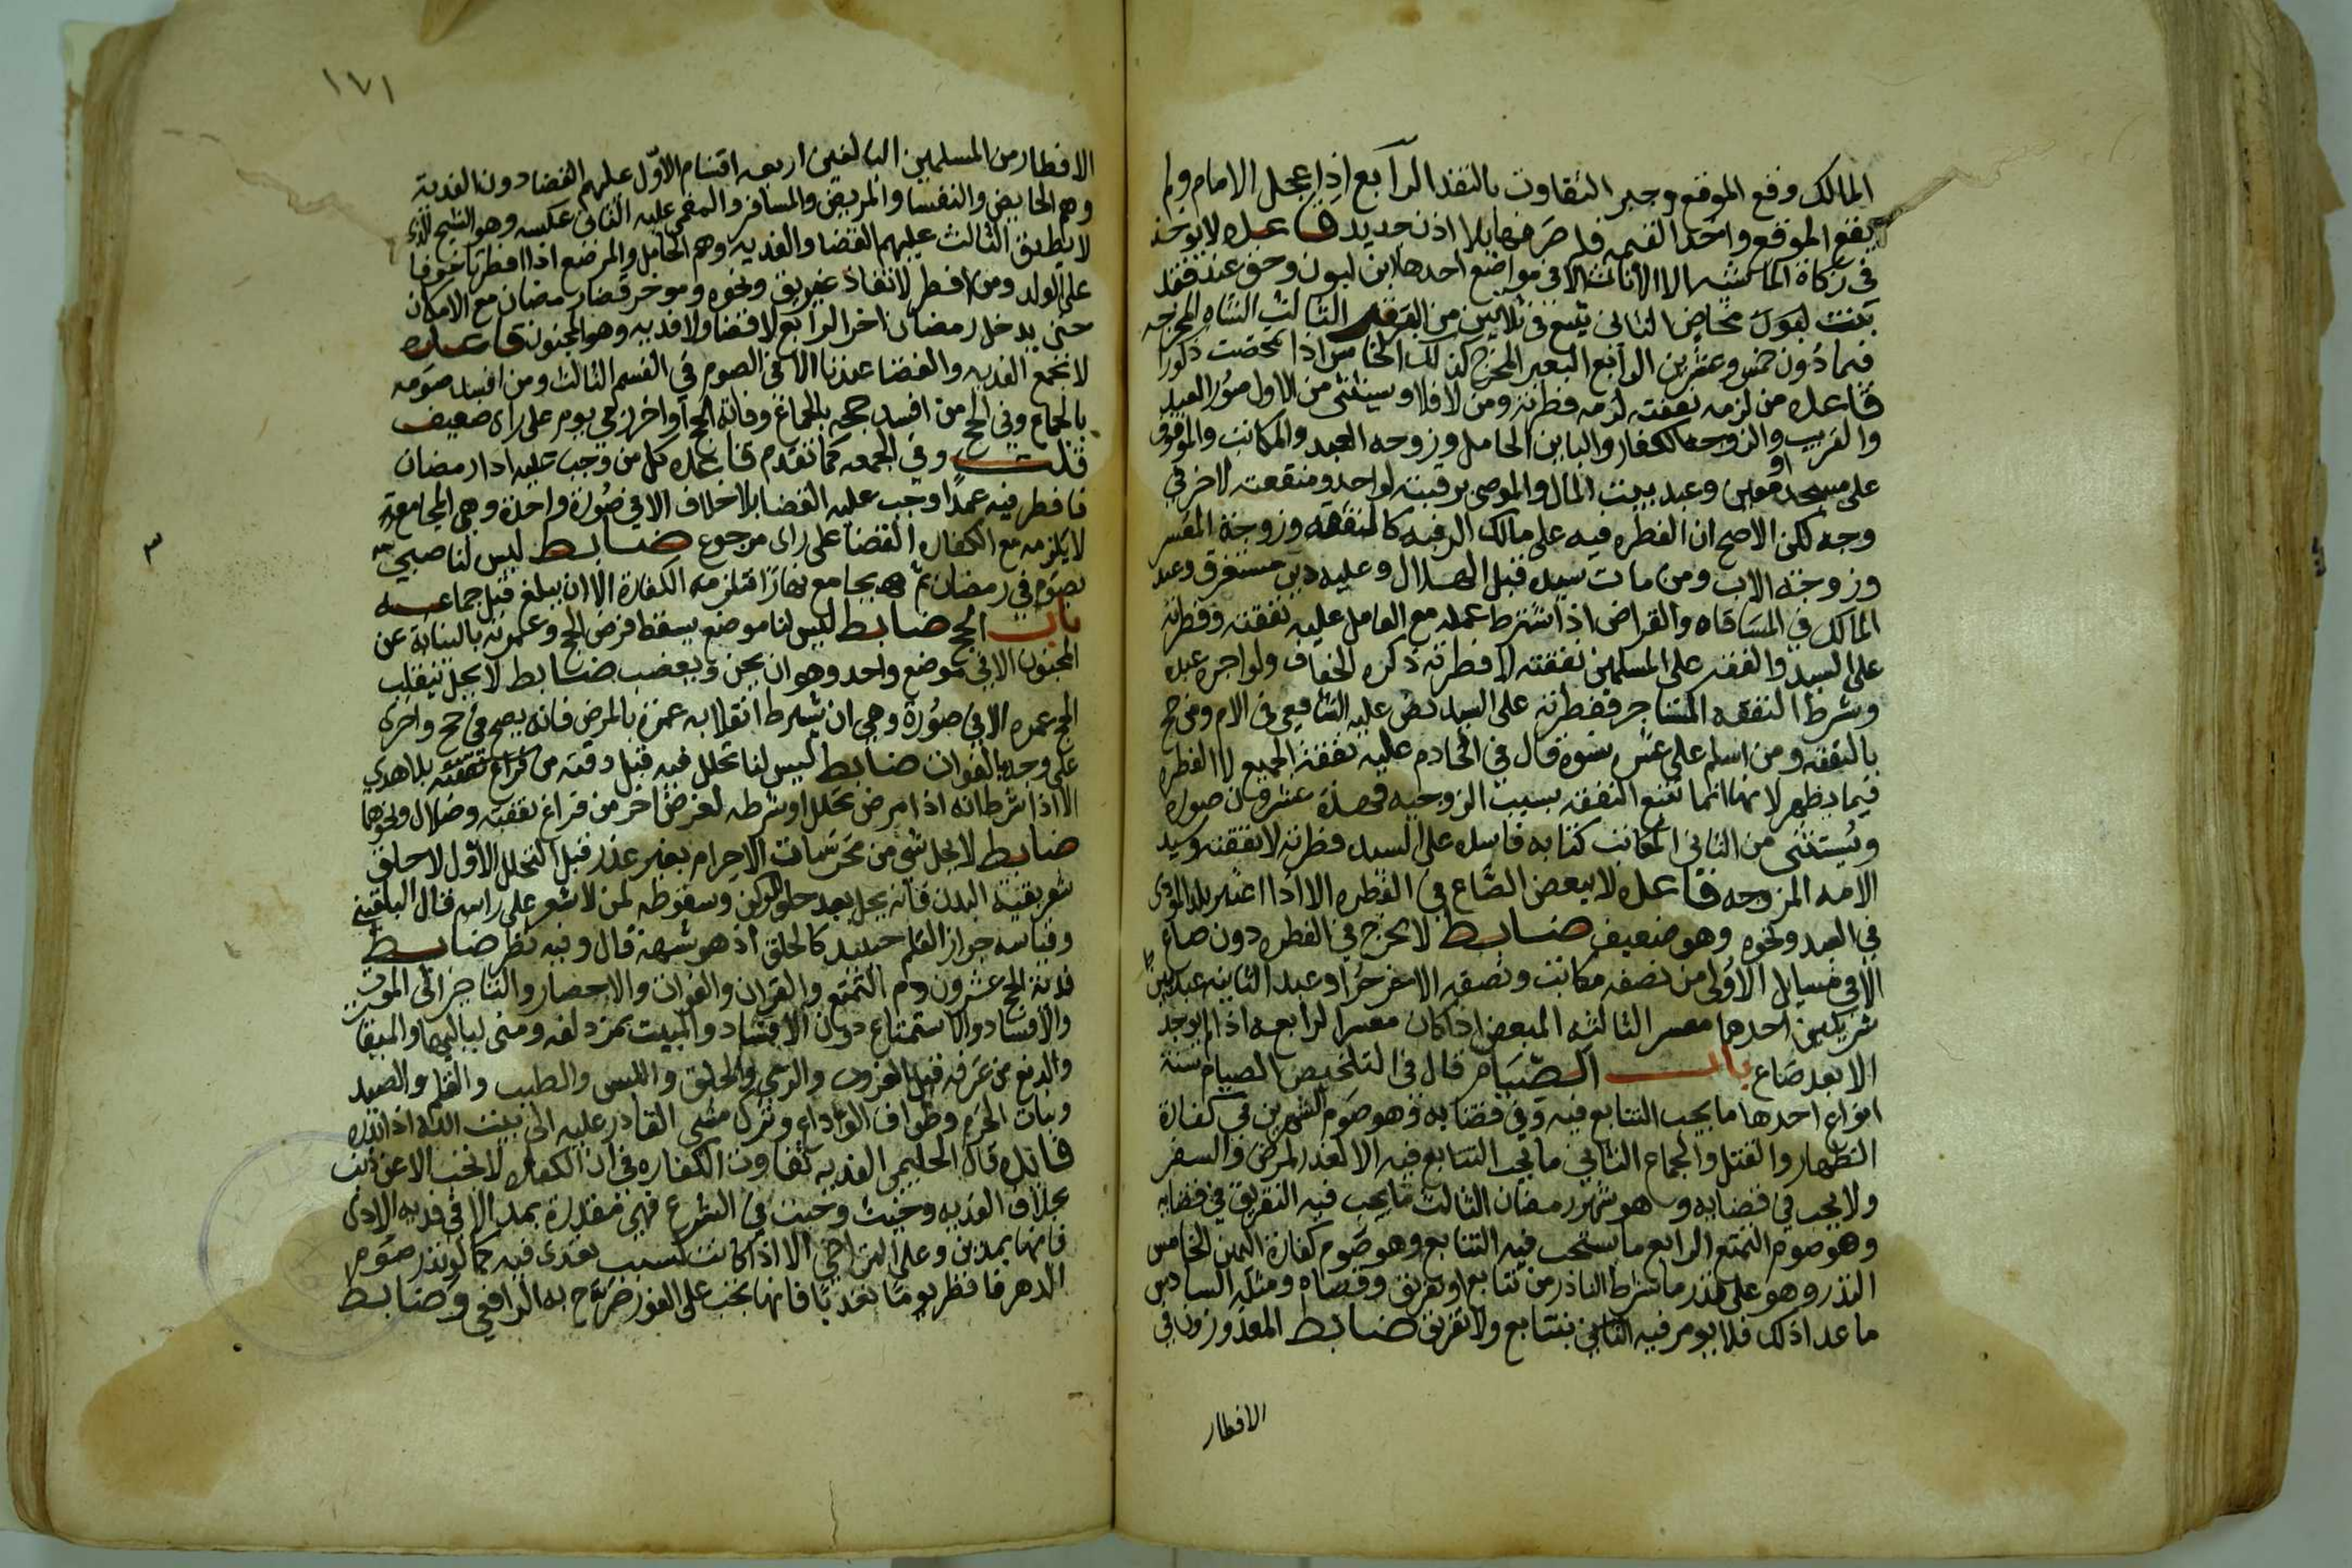 المالك وقع الموقع وجبر التفاوت بالنقد الرابع اذا عجل الامام ولم
يقع الموقع واخذ القيمه فله صرفها بلا اذن جديد قاعده لا يوخذ
في زكاة الماشيه الا الاناث الا في مواضع احدها ابن لبون وحق عند فقد
بنت لبون مخاض الثاني تبيع في ثلاثين من البقر الثالث الشاه المخرجه
فيما دون خمس وعشرين الرابع البعير المخرج كذلك الخامس اذا تمحضت ذكورا
قاعده من لزمه نفقته لزمه فطرته ومن لا فلا وسيتثنى من الاول صور العبد
والقريب والزوجه الكفار والباين الحامل وزوجه العبد والمكاتب والموقوف
على مسجد او معين وعبد بيت المال والموصى برقبته لواحد ومنفعته لاخر في
وجه لكن الاصح ان الفطره فيه على مالك الرقبه كالنفقه وزوجة المعسر
وزوجة الاب ومن مات سيده قبل الهلال وعليه دين مستغرق وعبد
المالك في المساقاه والقراض اذا شرط عمله مع العامل عليه نفقته وفطرته
على السيد والفقير على المسلمين نفقته لا فطرته ذكره الخفاف ولو اجر عبده
وشرط النفقه المستاجر ففطرته على السيد نص عليه الشافعي في الام ومن حج
بالنفقه ومن اسلم على عشر نسوة قال في الخادم عليه نفقة الجميع لا الفطره
فيما يظهر لانها انما تتبع النفقه بسبب الزوجيه فهذة عشرون صوره
ويستثنى من الثاني المكاتب كتابه فاسده على السيد فطرته لا نفقته وسيد
الامه المزوجه قاعده لا يبعض الصاع في الفطره الا اذا اعتبر بلد المودى
في العبد ونحوه وهو ضعيف ضابط لا يخرج في الفطره دون صاع
الا في مسايل الاولى من نصفه مكاتب ونصفه الاخر حر او عبد الثانيه عبد بين
شريكين احدهما معسر الثالثه المبعض اذا كان معسرا الرابعه اذا لم يوجد
الا بعد صاع باب الصيام قال في التلخيص الصيام ستة
انواع احدها ما يجب التتابع فيه وفي قضايه وهو صوم الشهرين في كفارة
الظهار والقتل والجماع الثاني ما يجب التتابع فيه الا لعذر المرض والسفر
ولا يجب في قضايه وهو شهر رمضان الثالث ما يجب فيه التفريق في قضايه
وهو صوم التمتع الرابع ما يستحب فيه التتابع وهو صوم كفارة اليمين الخامس
النذر وهو على قدر ما شرط الناذر من تتابع او تفريق وقضاه ومثله السادس
ما عدا ذلك فلا يومر فيه بتتابع ولا تفريق ضابط المعذورون في
الافطار
١٧١
الافطار من المسلمين البالغين اربعه اقسام الاول عليهم القضا دون الفدية
وهم الحايض والنفسا والمريض والمسافر والمغمى عليه الثاني عكسه وهو الشيخ الذي
لا يطيق الثالث عليهم القضا والفديه وهم الحامل والمرضع اذا افطرتا خوفا
على الولد ومن افطر لانقاذ غريق ونحوه وموخر قضا رمضان مع الامكان
حتى يدخل رمضان اخر الرابع لا قضا ولا فديه وهو المجنون قاعده
لا تجمع الفديه والقضا عندنا الا في الصوم في القسم الثالث ومن افسد صومه
بالجماع وفي الحج من افسد حجه بالجماع وفاته الحج او اخر رمي يوم على راى ضعيف
قلت وفي الجمعه كما تقدم قاعده كل من وجب عليه ادا رمضان
فافطر فيه عمدا وجب عليه القضا بلا خلاف الا في صورة واحدة وهي المجامع
لا يلزمه مع الكفاره القضا على راى مرجوع ضابط ليس لنا صبي
يصوم في رمضان ثم يجامع نهارا فتلزمه الكفارة الا ان يبلغ قبل جماعه
باب الحج ضابط ليس لنا موضع يسقط فرض الحج وعمرته بالنيابة عن
المجنون الا في موضع واحد وهو ان يجن ويعضب ضابط لا يحل ينقلب
الحج عمره الا في صورة وهي ان شرط انقلابه عمرة بالمرض فانه يصح في حج واخرى
على وجه بالفوات ضابط ليس لنا تحلل فيه قبل وقته من فراغ نفقته بلا هدي
الا اذا شرط انه اذا مرض تحلل او شرطه لغرض اخر من فراغ نفقته وضلال ونحوها
ضابط لا يحل شي من محرمات الاحرام بغير عذر قبل التحلل الاول الا حلق
شعر بقية البدن فانه يحل بعد حلق الركن وسقوطه لمن لا شعر على راسه قال البلقيني
وقياسه جواز القلم حينيذ كالحلق اذ هو شبهه قال وفيه نظر ضابط
فدية الحج عشرون دم التمتع والقران والفوات والاحصار والتاخير الى الموت
والافساد والاستمتاع دون الافساد والمبيت بمزدلفه ومنى لياليها والميقات
والدفع من عرفه قبل الغروب والرمي والحلق واللبس والطيب والقلم والصيد
ونبات الحرم وطواف الوداع وترك مشي القادر عليه الى بيت الله اذا نذره
فايده قال الحليمي الفديه تفاوت الكفاره في ان الكفاره لا تجب الا عن ذنب
بخلاف الفديه وحيث وجبت في الشرع فهي مقدرة بمد الا في فديه الاذى
فانها بمدين وعلى التراخي الا اذا كانت بسبب تعدى فيه كما لو نذر صوم
الدهر فافطر يوما تعديا فانها تجب على الفور صرح به الرافعي وضابط